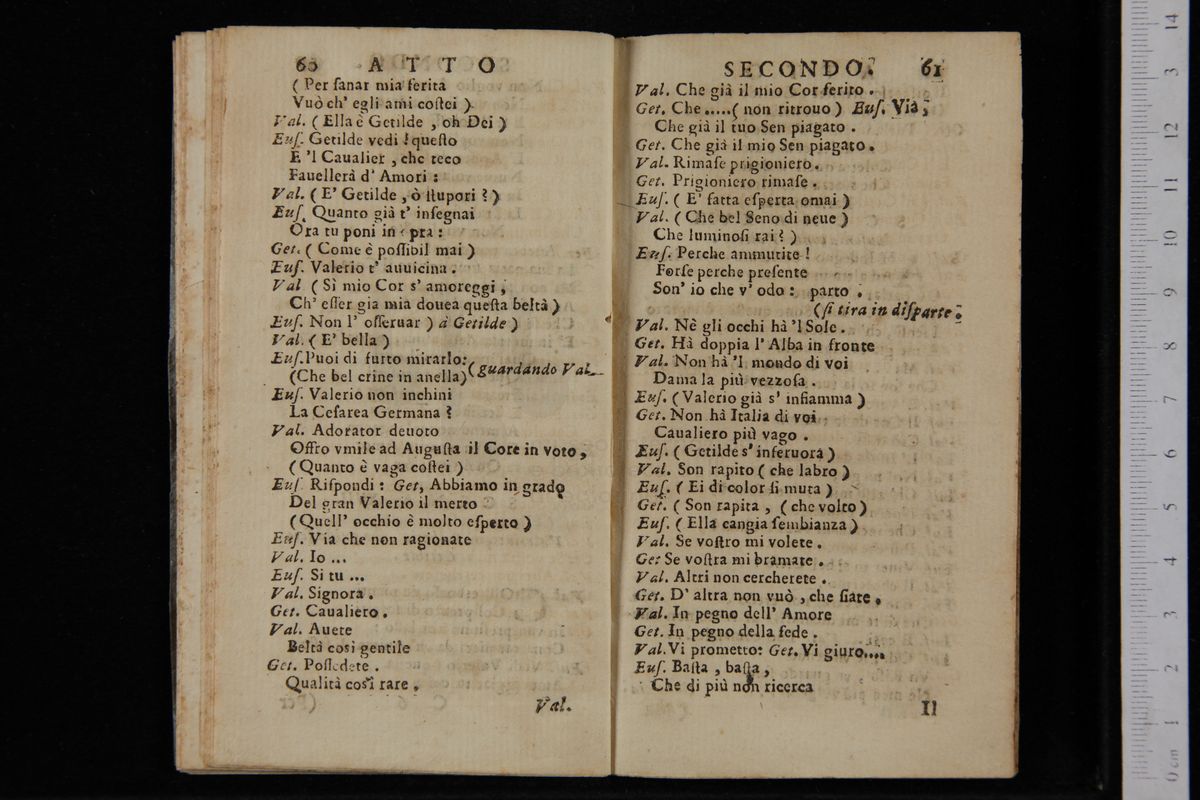 60 ATTO
( Per ſanar mia ferita
Vuò ch' egli ami coſtei )
Val. ( Ella è Getilde , oh Dei )
Euſ. Getilde vedi ! queſto
E 'l Caualier , che teco
Fauellerà d' Amori :
Val. ( E' Getilde , ò ſtupori ? )
Euſ. Quanto già t' inſegnai
Ora tu poni in pra :
Get. ( Come è poſſibil mai )
Euſ. Valerio t' auuicina .
Val ( Sì mio Cor s' amoreggi ,
Ch' eſſer gia mia douea queſta beltà )
Euſ. Non l' oſſeruar ) à Getilde )
Val. ( E' bella )
Euſ. Puoi di furto mirarlo:
(Che bel crine in anella) (guardando Val.
Euſ. Valerio non inchini
La Ceſarea Germana ?
Val. Adorator deuoto
Offro vmile ad Auguſta il Core in voto ,
(Quanto è vaga coſtei )
Euſ. Riſpondi : Get, Abbiamo in grado
Del gran Valerio il merto
(Quell' occhio è molto eſperto )
Euſ. Via che non ragionate
Val. Io ...
Euſ. Si tu ...
Val. Signora .
Get. Caualiero .
Val. Auete
Beltà così gentile
Get. Poſſedete .
Qualità così rare .
Val.
SECONDO. 61
Val. Che già il mio Cor ferito .
Get. Che .....( non ritrouo ) Euſ. Via ;
Che già il tuo Sen piagato .
Get. Che già il mio Sen piagato .
Val. Rimaſe prigioniero .
Get. Prigioniero rimaſe .
Euſ. ( E' fatta eſperta omai )
Val. ( Che bel Seno di neue )
Che luminoſi rai ? )
Euſ. Perche ammutite !
Forſe perche preſente
Son' io che v' odo : parto .
(ſi tira in diſparte .
Val. Nè gli occhi hà 'l Sole .
Get. Hà doppia l' Alba in fronte
Val. Non hà 'l mondo di voi
Dama la più vezzoſa .
Euſ. ( Valerio già s' infiamma )
Get. Non hà Italia di voi
Caualiero più vago .
Euſ. ( Getilde s' inferuora )
Val. Son rapito ( che labro )
Euſ. ( Ei di color ſi muta )
Get. ( Son rapita , ( che volto )
Euſ. ( Ella cangia ſembianza )
Val. Se voſtro mi volete .
Get Se voſtra mi bramate .
Val. Altri non cercherete .
Get. D' altra non vuò , che ſiate .
Val. In pegno dell' Amore
Get. In pegno della fede .
Val. Vi prometto: Get. Vi giuro....
Euſ. Baſta , baſta ,
Che di più non ricerca
Il